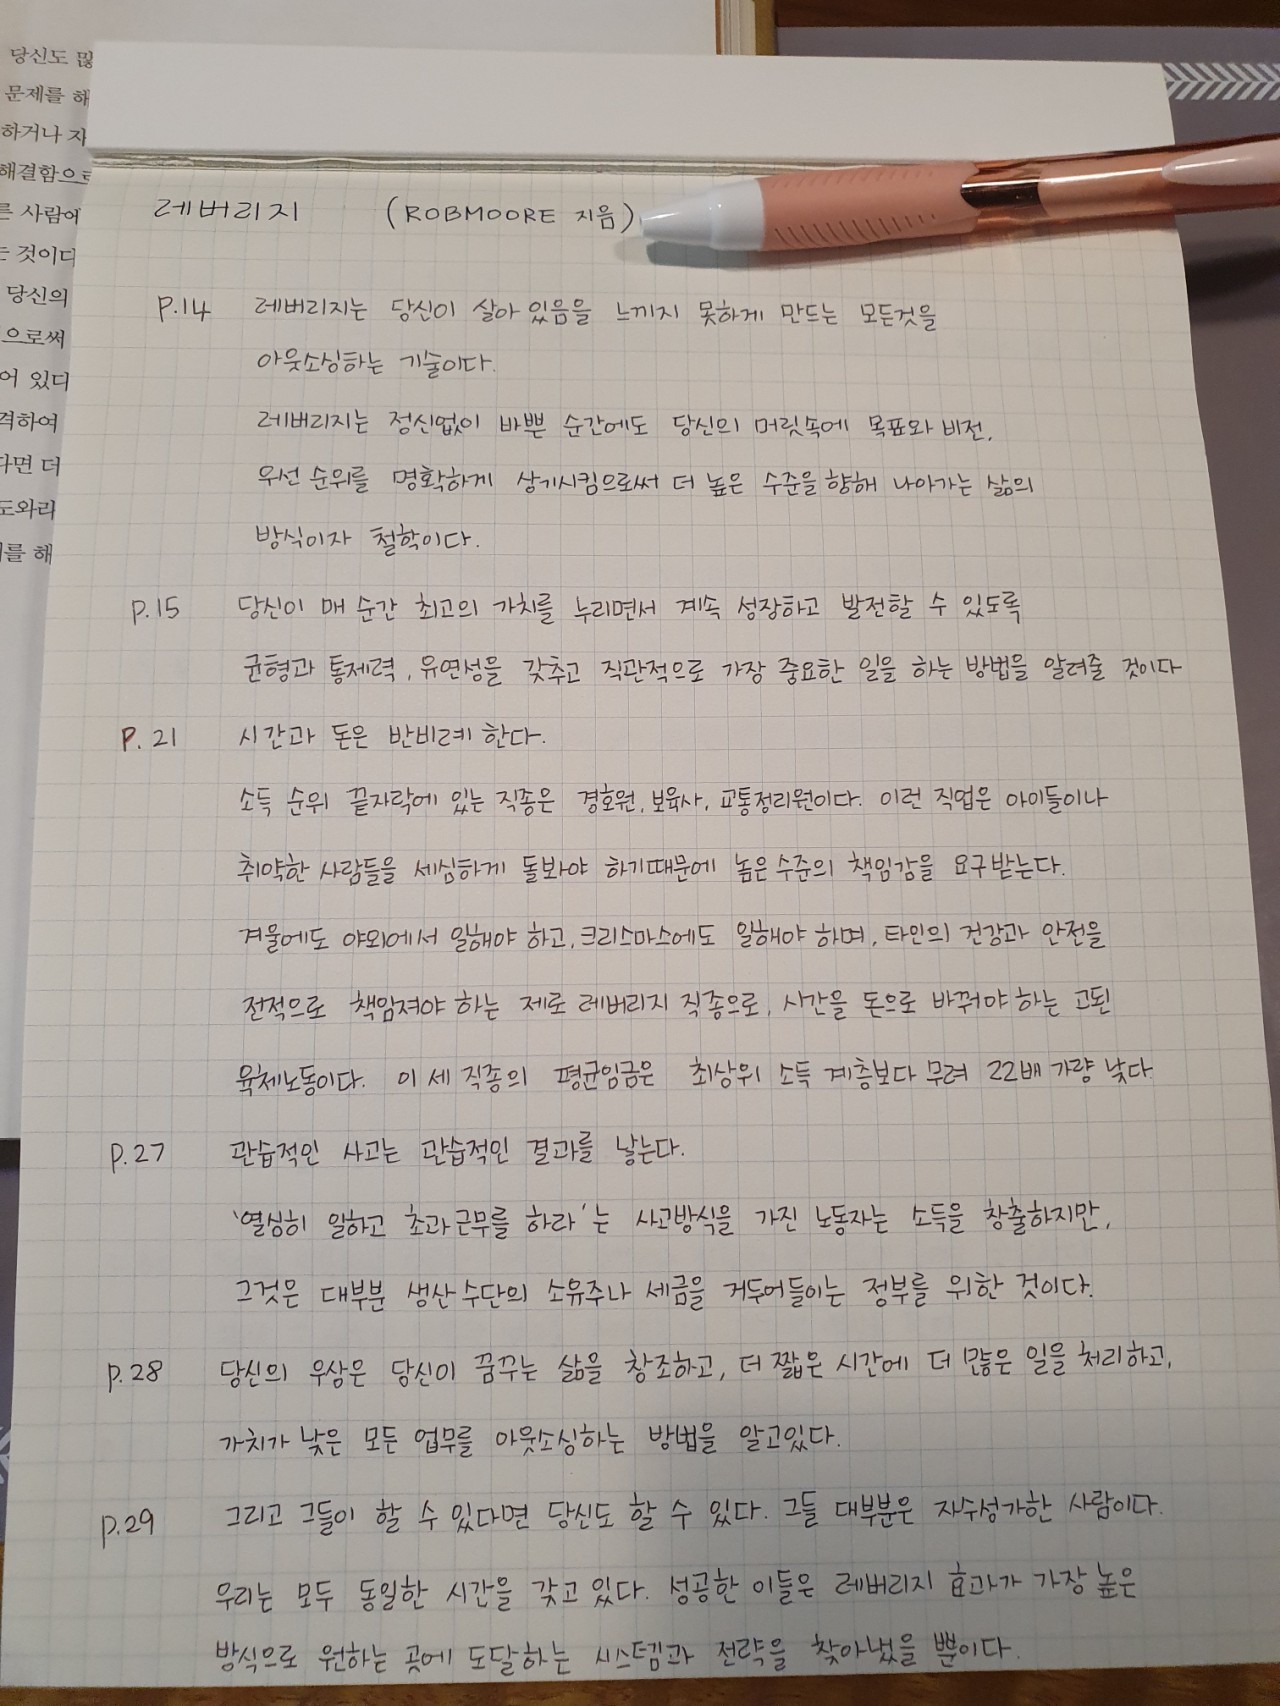 당신도 많
문제를 해
하거나 자
해결함으로
른 사람에
는 것이다
당신의
으로써
어 있다
격하여
다면 더
도와라
를 해
레버리지 (ROBMOORE 지음)
P.14 레버리지는 당신이 살아 있음을 느끼지 못하게 만드는 모든것을
아웃소싱하는 기술이다.
레버리지는 정신없이 바쁜 순간에도 당신의 머릿속에 목표와 비전,
우선 순위를 명확하게 상기시킴으로써 더 높은 수준을 향해 나아가는 삶의
방식이자 철학이다.
P.15 당신이 매 순간 최고의 가치를 누리면서 계속 성장하고 발전할 수 있도록
균형과 통제력, 유연성을 갖추고 직관적으로 가장 중요한 일을 하는 방법을 알려줄 것이다
P. 21 시간과 돈은 반비례 한다.
소득 순위 끝자락에 있는 직종은 경호원, 보육사, 교통정리원이다. 이런 직업은 아이들이나
취약한 사람들을 세심하게 돌봐야 하기때문에 높은 수준의 책임감을 요구받는다.
겨울에도 야외에서 일해야 하고, 크리스마스에도 일해야 하며, 타인의 건강과 안전을
전적으로 책임져야 하는 제로 레버리지 직종으로, 시간을 돈으로 바꿔야 하는 고된
육체노동이다. 이 세 직종의 평균임금은 최상위 소득 계층보다 무려 22배 가량 낮다.
P.27 관습적인 사고는 관습적인 결과를 낳는다.
'열심히 일하고 초과근무를 하라'는 사고방식을 가진 노동자는 소득을 창출하지만,
그것은 대부분 생산수단의 소유주나 세금을 거두어들이는 정부를 위한 것이다.
P.28 당신의 우상은 당신이 꿈꾸는 삶을 창조하고, 더 짧은 시간에 더 많은 일을 처리하고,
가치가 낮은 모든 업무를 아웃소싱하는 방법을 알고있다.
P.29 그리고 그들이 할 수 있다면 당신도 할 수 있다. 그들 대부분은 자수성가한 사람이다.
우리는 모두 동일한 시간을 갖고 있다. 성공한 이들은 레버리지 효과가 가장 높은
방식으로 원하는 곳에 도달하는 시스템과 전략을 찾아냈을 뿐이다.